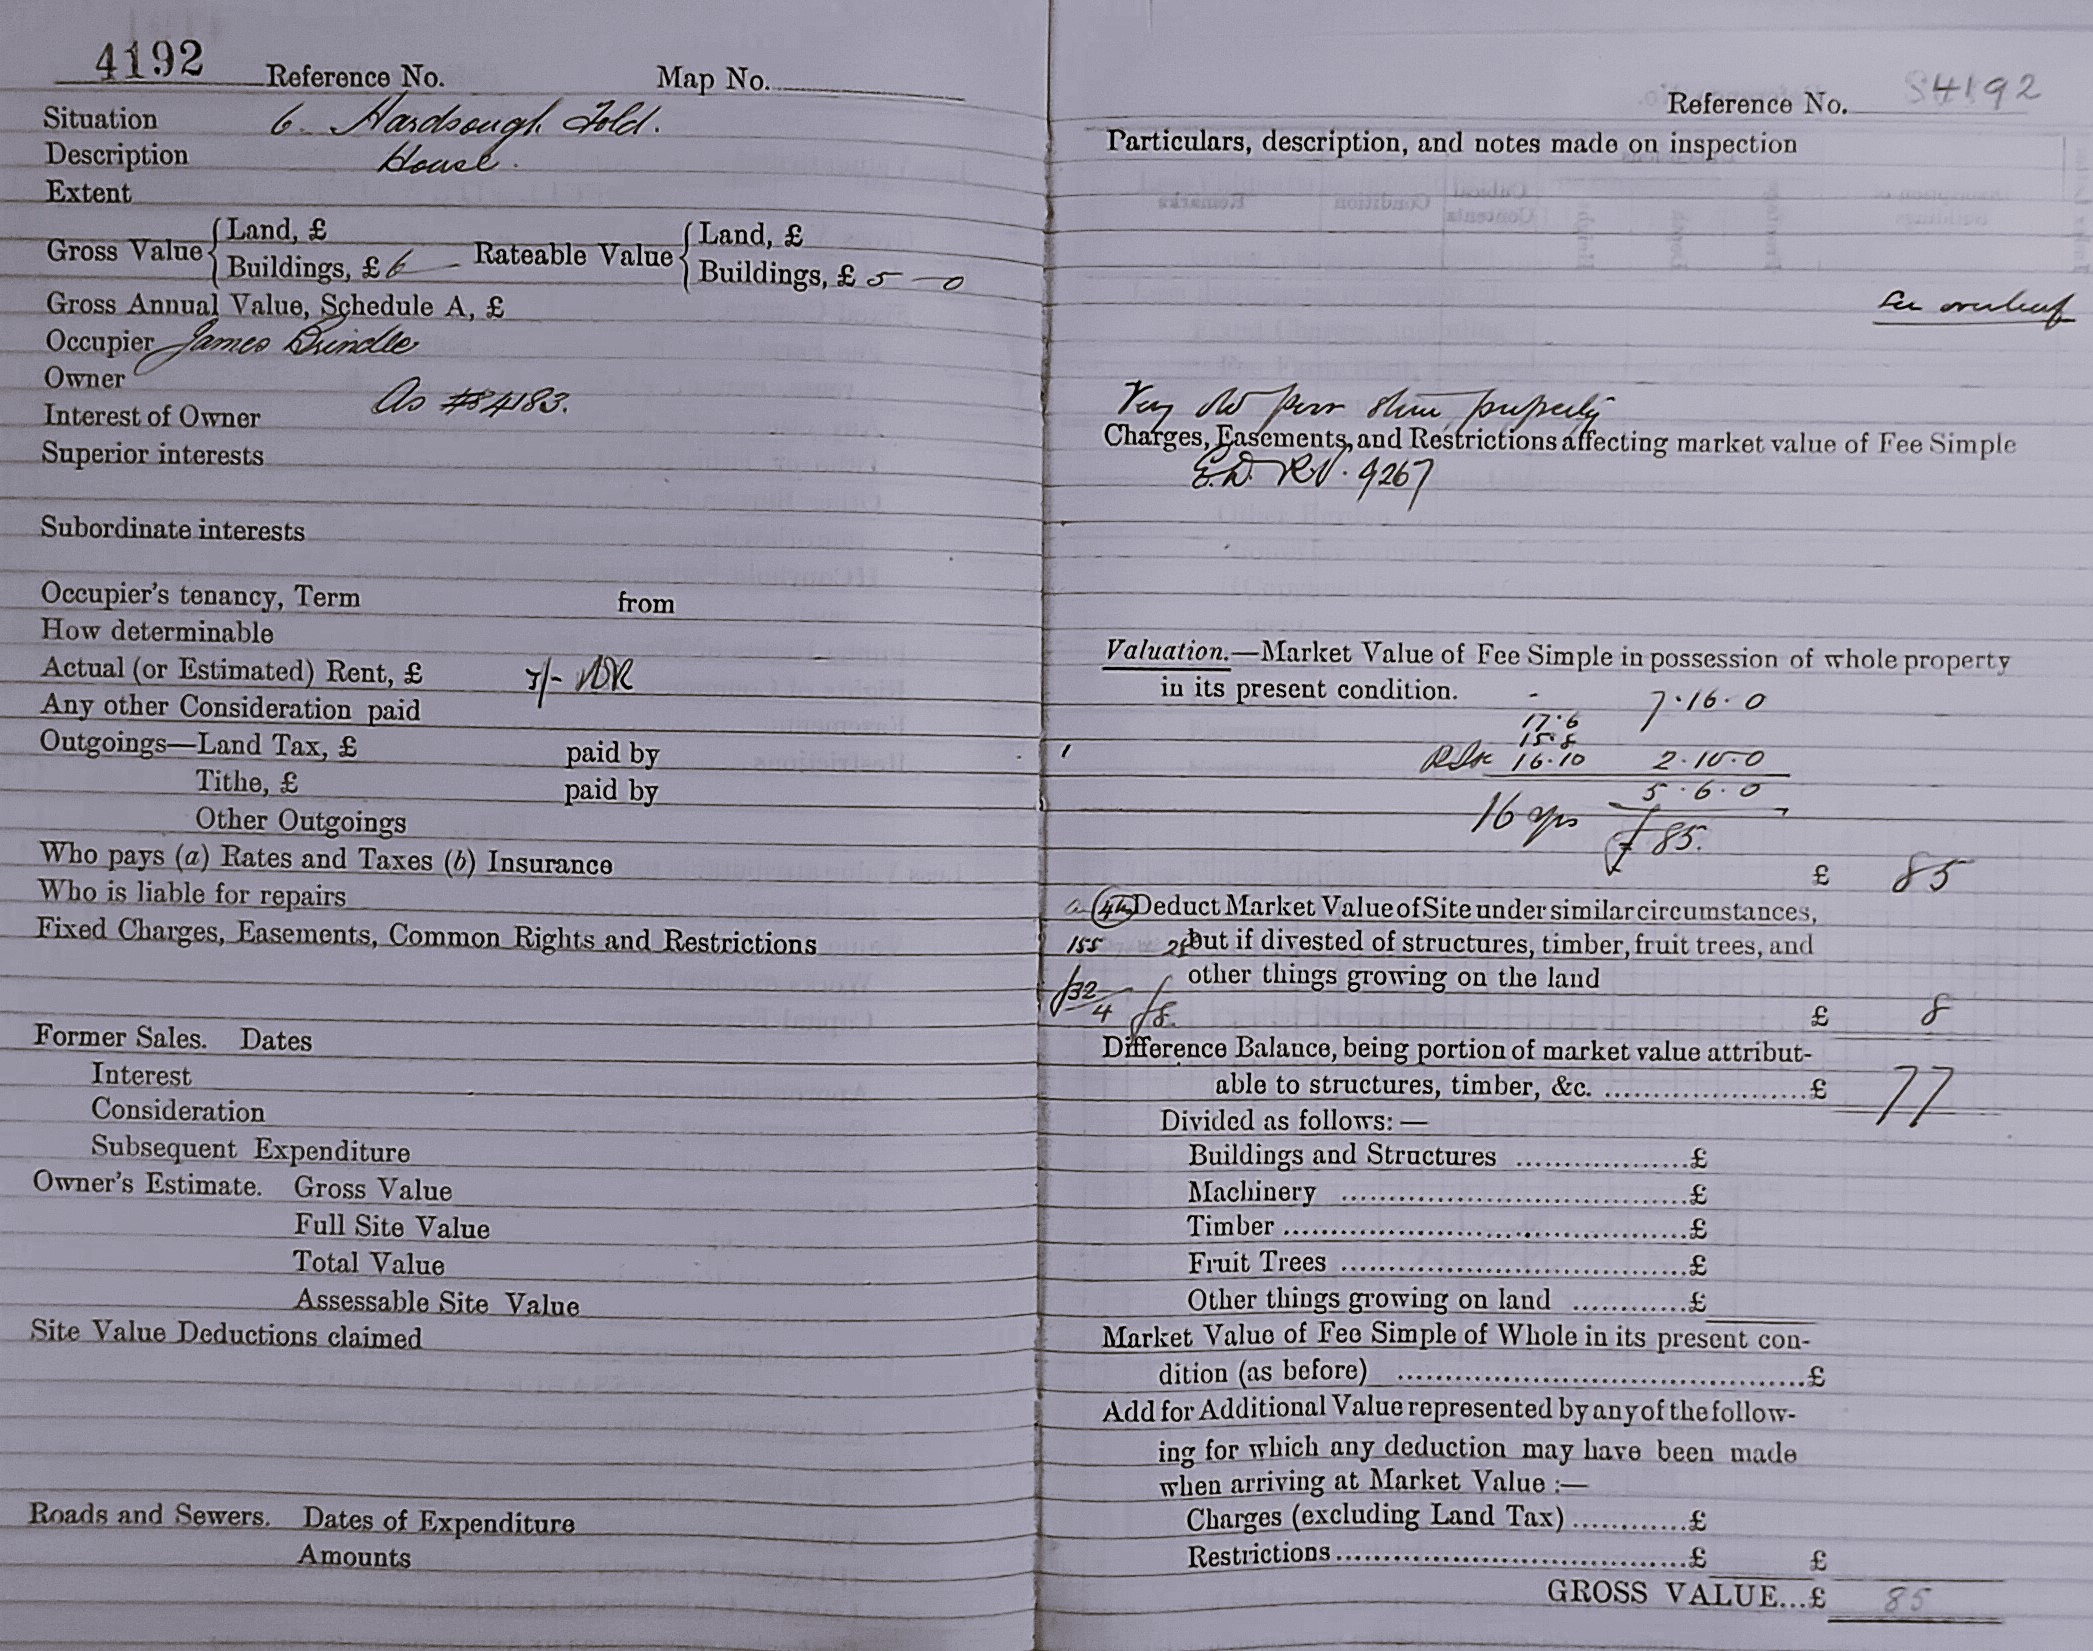 4192 Reference No. Map No.
Situation 6 Hardsough Fold.
Description House.
Extent
Gross Value { Land, £ Rateable Value { Land, £
Buildings, £ 6 — Buildings, £ 5 — 0
Gross Annual Value, Schedule A, £
Occupier James Brindle
Owner
As 4183.
Interest of Owner
Superior interests
Subordinate interests
Occupier's tenancy, Term from
How determinable
Actual (or Estimated) Rent, £ 3/-
Any other Consideration paid
Outgoings—Land Tax, £ paid by
Tithe, £ paid by
Other Outgoings
Who pays (a) Rates and Taxes (b) Insurance
Who is liable for repairs
Fixed Charges, Easements, Common Rights and Restrictions
Former Sales. Dates
Interest
Consideration
Subsequent Expenditure
Owner's Estimate. Gross Value
Full Site Value
Total Value
Assessable Site Value
Site Value Deductions claimed
Roads and Sewers. Dates of Expenditure
Amounts
Reference No. 4192
Particulars, description, and notes made on inspection
See overleaf
Very old poor slum property
Charges, Easements, and Restrictions affecting market value of Fee Simple
E.D. RV. 9267
Valuation.—Market Value of Fee Simple in possession of whole property
in its present condition. 7.16.0
17.6
15.8
16.10 2.10.0
5.6.0
16 yps £85.
£ 85
Deduct Market Value of Site under similar circumstances,
155 but if divested of structures, timber, fruit trees, and
other things growing on the land
£32/4 £8.
£ 8
Difference Balance, being portion of market value attribut-
able to structures, timber, &c. .....................£ 77
Divided as follows:—
Buildings and Structures ..................£
Machinery ....................................£
Timber..........................................£
Fruit Trees ....................................£
Other things growing on land ............£
Market Value of Fee Simple of Whole in its present con-
dition (as before) ..........................................£
Add for Additional Value represented by any of the follow-
ing for which any deduction may have been made
when arriving at Market Value :—
Charges (excluding Land Tax)............£
Restrictions.....................................£ £
GROSS VALUE...£ 85